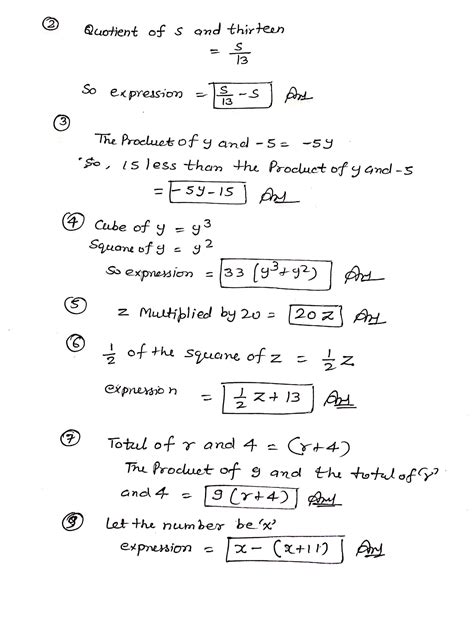 ② Quotient of s and thirteen
= s/13
So expression = s/13 - s Ans
③
The Product of y and -5 = -5y
So, 15 less than the Product of y and -5
= -5y-15 Ans
④ Cube of y = y³
Square of y = y²
So expression = 33 (y³+y²) Ans
⑤ z Multiplied by 20 = 20 z Ans
⑥ 1/2 of the square of z = 1/2 z
expression = 1/2 z + 13 Ans
⑦ Total of r and 4 = (r+4)
The Product of 9 and the total of 'r'
and 4 = 9 (r+4) Ans
Let the number be 'x'
expression = x - (x+11) Ans